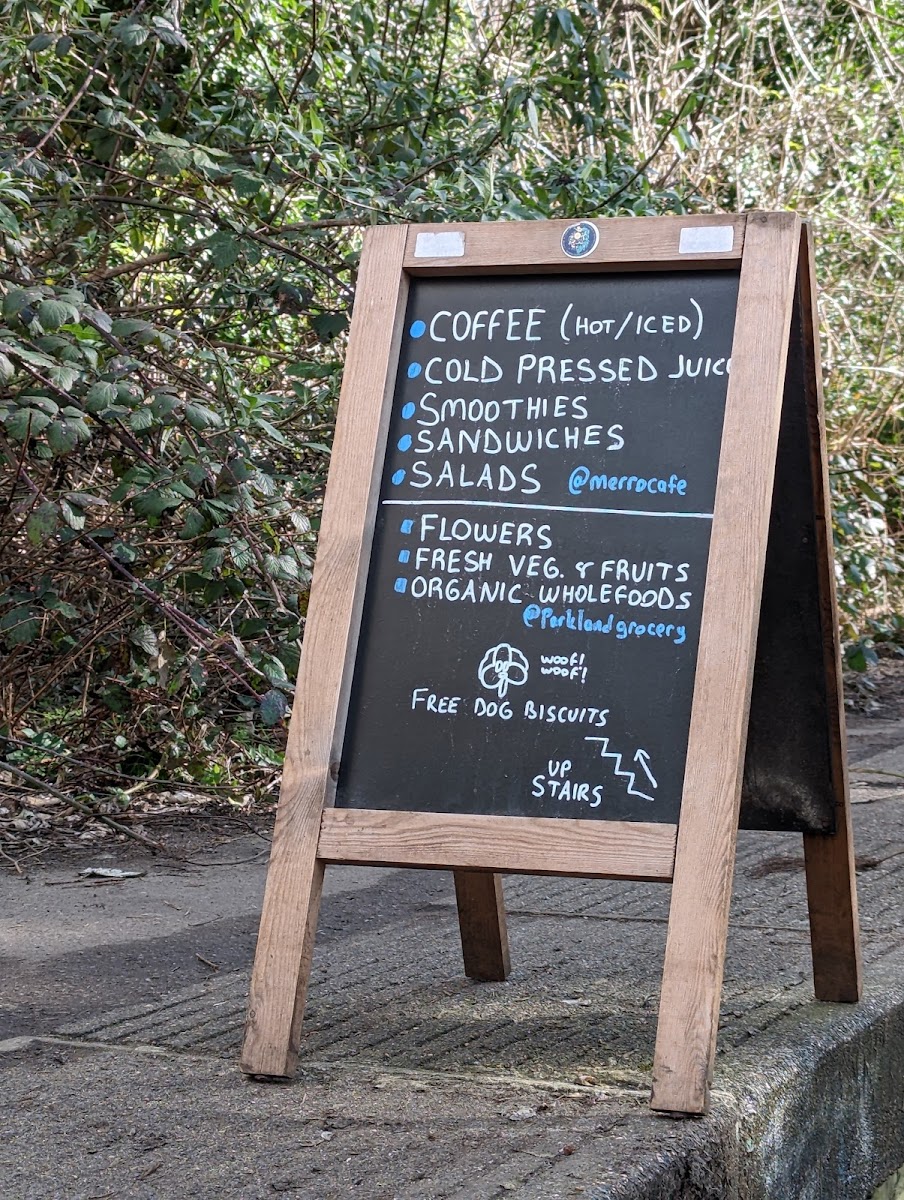 COFFEE (HOT/ICED)
COLD PRESSED JUICE
SMOOTHIES
SANDWICHES
SALADS @merrocafe
FLOWERS
FRESH VEG. & FRUITS
ORGANIC WHOLEFOODS
@Parklandgrocery
WOOF!
WOOF!
FREE DOG BISCUITS
UP
STAIRS